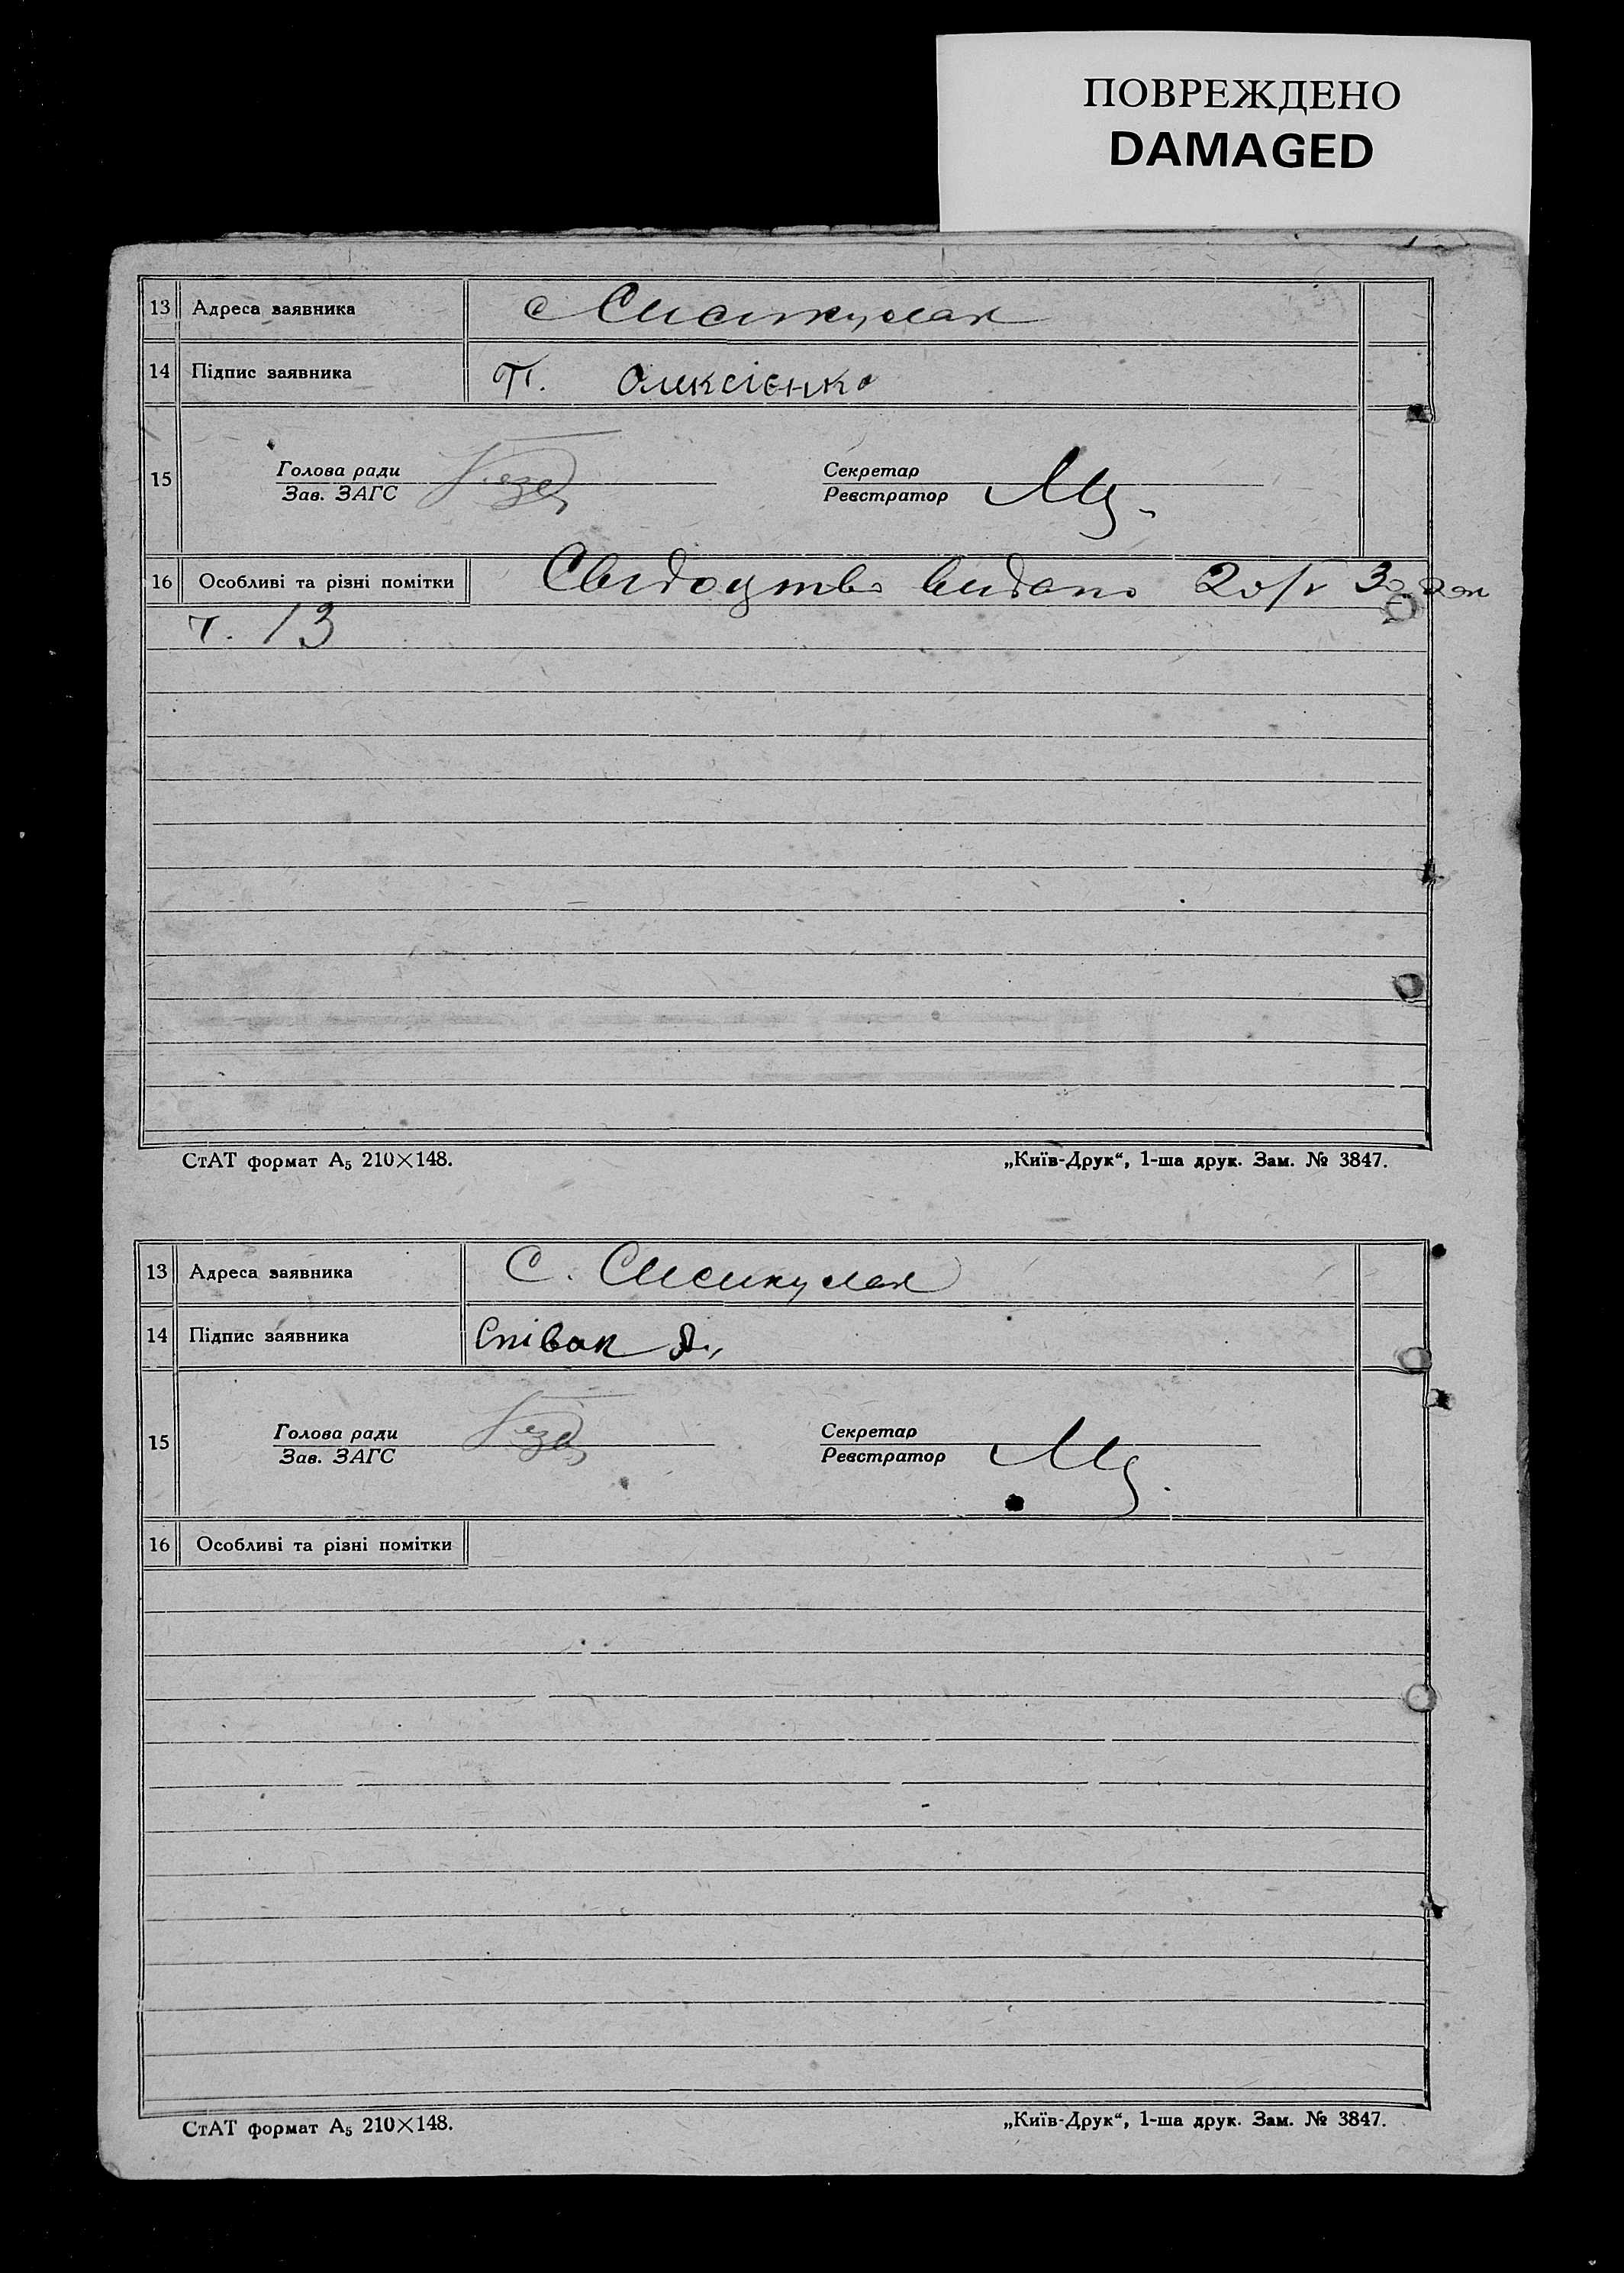 ПОВРЕЖДЕНО
DAMAGED
13 Адреса заявника с
14 Підпис заявника П. Олексієнко
15 Голова ради Секретар
Зав. ЗАГС Реєстратор
16 Особливі та різні помітки Свідоцтво видано
т. 13
СтАТ формат А5 210×148. „Київ-Друк“, 1-ша друк. Зам. № 3847.
13 Адреса заявника С.
14 Підпис заявника Співак
15 Голова ради Секретар
Зав. ЗАГС Реєстратор
16 Особливі та різні помітки
СтАТ формат А5 210×148. „Київ-Друк“, 1-ша друк. Зам. № 3847.